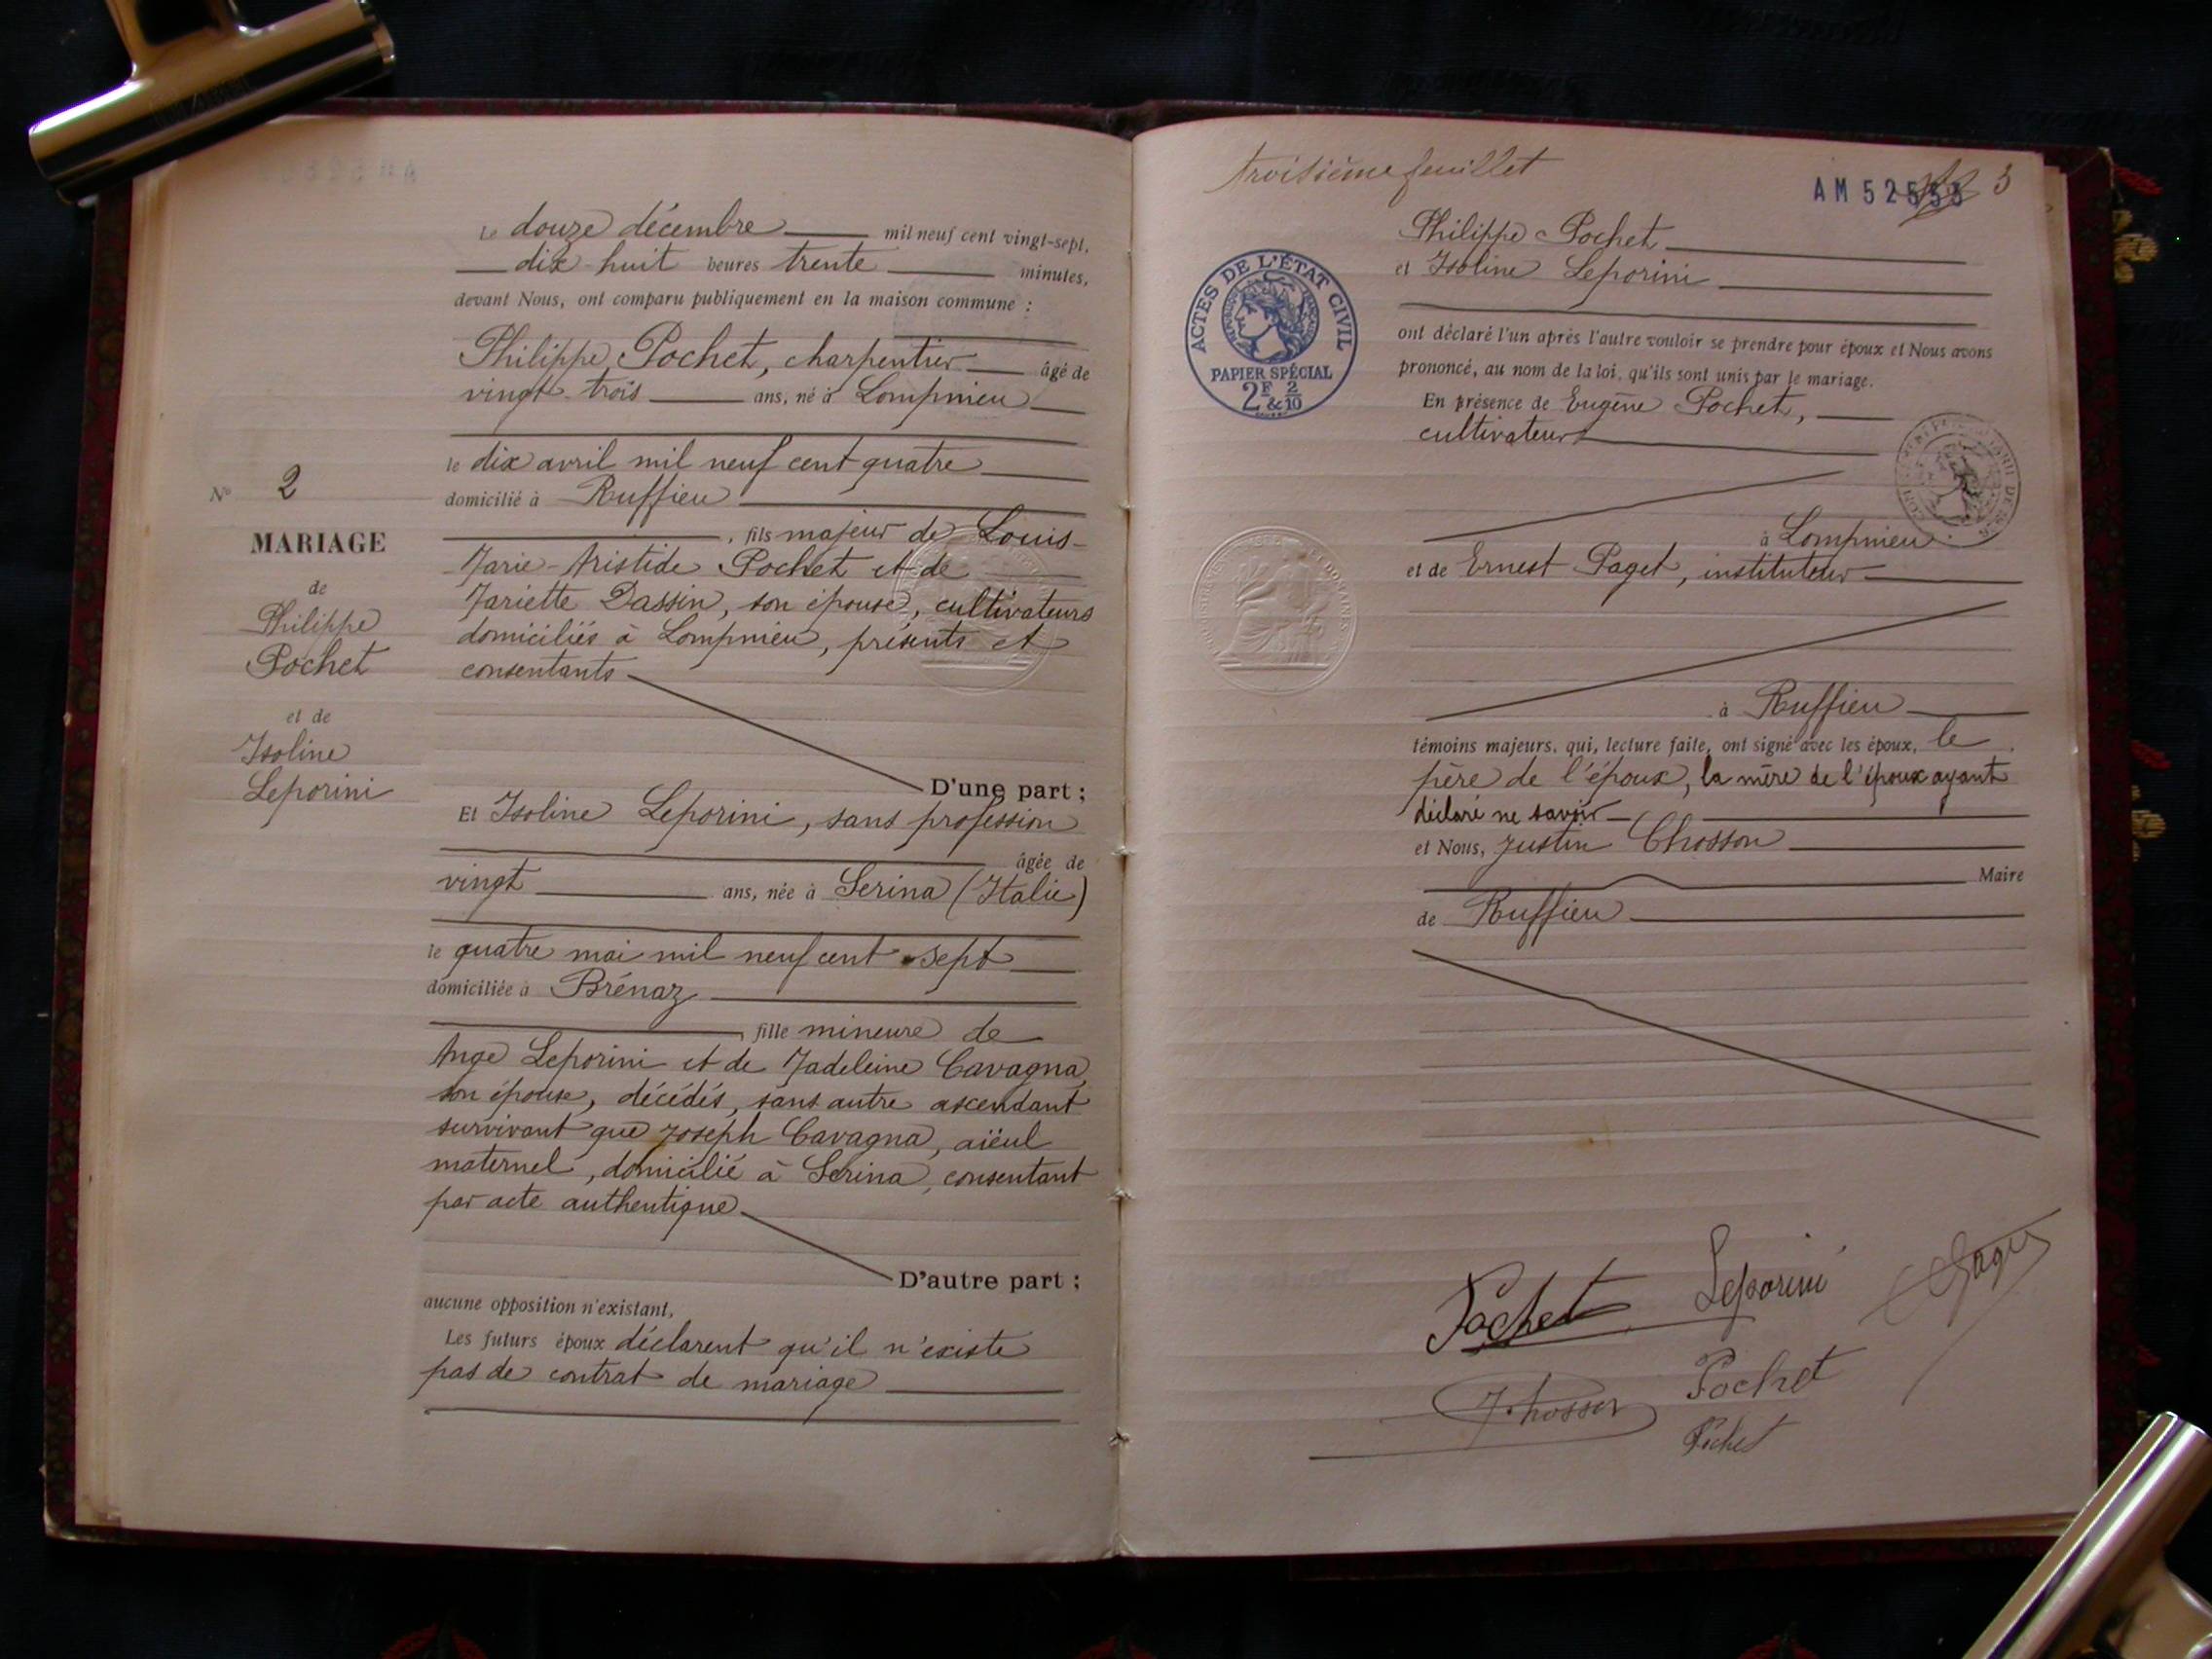 Le douze décembre mil neuf cent vingt-sept,
dix-huit heures trente minutes,
devant Nous, ont comparu publiquement en la maison commune :
Philippe Pochet, charpentier âgé de
vingt-trois ans, né à Lompnieu
le dix avril mil neuf cent quatre
domicilié à Ruffieu
, fils majeur de Louis-
Marie-Aristide Pochet et de
Mariette Dassin, son épouse, cultivateurs
domiciliés à Lompnieu, présents et
consentants
D'une part ;
Et Isoline Leporini, sans profession
âgée de
vingt ans, née à Serina (Italie)
le quatre mai mil neuf cent sept
domiciliée à Brénaz
, fille mineure de
Ange Leporini et de Madeleine Cavagna,
son épouse, décédés, sans autre ascendant
survivant que Joseph Cavagna, aïeul
maternel, domicilié à Serina, consentant
par acte authentique
D'autre part ;
aucune opposition n'existant,
Les futurs époux déclarent qu'il n'existe
pas de contrat de mariage
No 2
MARIAGE
de
Philippe
Pochet
et de
Isoline
Leporini
troisième feuillet
AM 52553 3
ACTES DE L'ÉTAT CIVIL
RÉPUBLIQUE FRANÇAISE
PAPIER SPÉCIAL
2F & 2/10
Philippe Pochet
et Isoline Leporini
ont déclaré l'un après l'autre vouloir se prendre pour époux et Nous avons
prononcé, au nom de la loi, qu'ils sont unis par le mariage.
En présence de Eugène Pochet,
cultivateur
à Lompnieu
et de Ernest Paget, instituteur
à Ruffieu
témoins majeurs, qui, lecture faite, ont signé avec les époux, le
père de l'époux, la mère de l'époux ayant
déclaré ne savoir
et Nous, Justin Chosson
Maire
de Ruffieu
Pochet Leporini
J. Chosson Pochet
Pochet